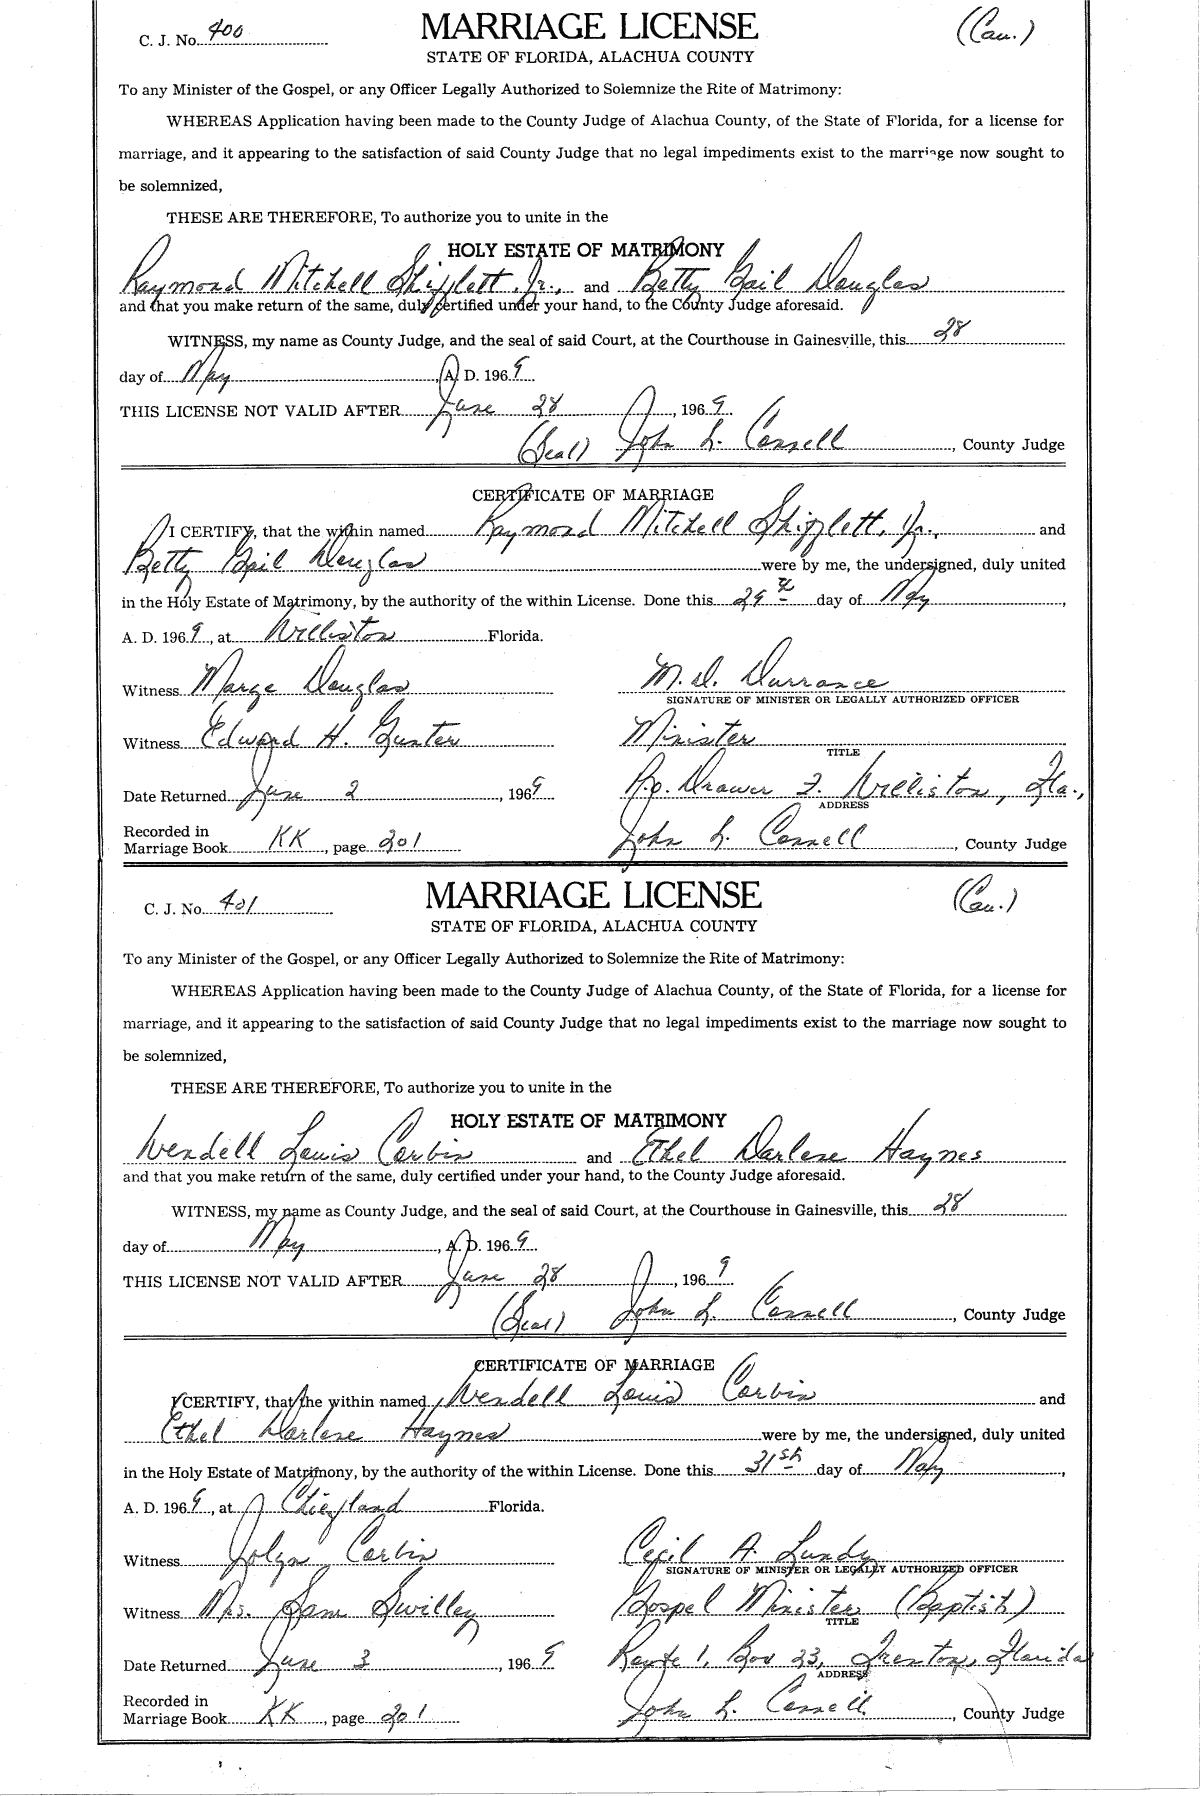 C. J. No. 400 MARRIAGE LICENSE (Cau.)
STATE OF FLORIDA, ALACHUA COUNTY
To any Minister of the Gospel, or any Officer Legally Authorized to Solemnize the Rite of Matrimony:
WHEREAS Application having been made to the County Judge of Alachua County, of the State of Florida, for a license for
marriage, and it appearing to the satisfaction of said County Judge that no legal impediments exist to the marriage now sought to
be solemnized,
THESE ARE THEREFORE, To authorize you to unite in the
HOLY ESTATE OF MATRIMONY
Raymond Mitchell Shifflett, Jr., and Betty Gail Douglas
and that you make return of the same, duly certified under your hand, to the County Judge aforesaid.
WITNESS, my name as County Judge, and the seal of said Court, at the Courthouse in Gainesville, this 28
day of May, A. D. 1969
THIS LICENSE NOT VALID AFTER June 28, 1969
(Seal) John L. Connell, County Judge
CERTIFICATE OF MARRIAGE
I CERTIFY, that the within named Raymond Mitchell Shifflett, Jr., and
Betty Gail Douglas were by me, the undersigned, duly united
in the Holy Estate of Matrimony, by the authority of the within License. Done this 29th day of May,
A. D. 1969, at Williston Florida.
Witness Marge Douglas M. D. Durrance
SIGNATURE OF MINISTER OR LEGALLY AUTHORIZED OFFICER
Witness Edward H. Gunter Minister
TITLE
Date Returned June 2, 1969 P.o. Drawer F. Williston, Fla.,
ADDRESS
Recorded in
Marriage Book KK, page 201 John L. Connell, County Judge
C. J. No. 401 MARRIAGE LICENSE (Cau.)
STATE OF FLORIDA, ALACHUA COUNTY
To any Minister of the Gospel, or any Officer Legally Authorized to Solemnize the Rite of Matrimony:
WHEREAS Application having been made to the County Judge of Alachua County, of the State of Florida, for a license for
marriage, and it appearing to the satisfaction of said County Judge that no legal impediments exist to the marriage now sought to
be solemnized,
THESE ARE THEREFORE, To authorize you to unite in the
HOLY ESTATE OF MATRIMONY
Wendell Louis Corbin and Ethel Darlene Haynes
and that you make return of the same, duly certified under your hand, to the County Judge aforesaid.
WITNESS, my name as County Judge, and the seal of said Court, at the Courthouse in Gainesville, this 28
day of May, A. D. 1969
THIS LICENSE NOT VALID AFTER June 28, 1969
(Seal) John L. Connell, County Judge
CERTIFICATE OF MARRIAGE
I CERTIFY, that the within named Wendell Louis Corbin and
Ethel Darlene Haynes were by me, the undersigned, duly united
in the Holy Estate of Matrimony, by the authority of the within License. Done this 31st day of May,
A. D. 1969, at Chiefland Florida.
Witness Jolyn Corbin Cecil A. Lundy
SIGNATURE OF MINISTER OR LEGALLY AUTHORIZED OFFICER
Witness Mrs. Swilley Gospel Minister (Baptist)
TITLE
Date Returned June 3, 1969 Route 1, Box 23, Trenton, Florida
ADDRESS
Recorded in
Marriage Book KK, page 201 John L. Connell, County Judge